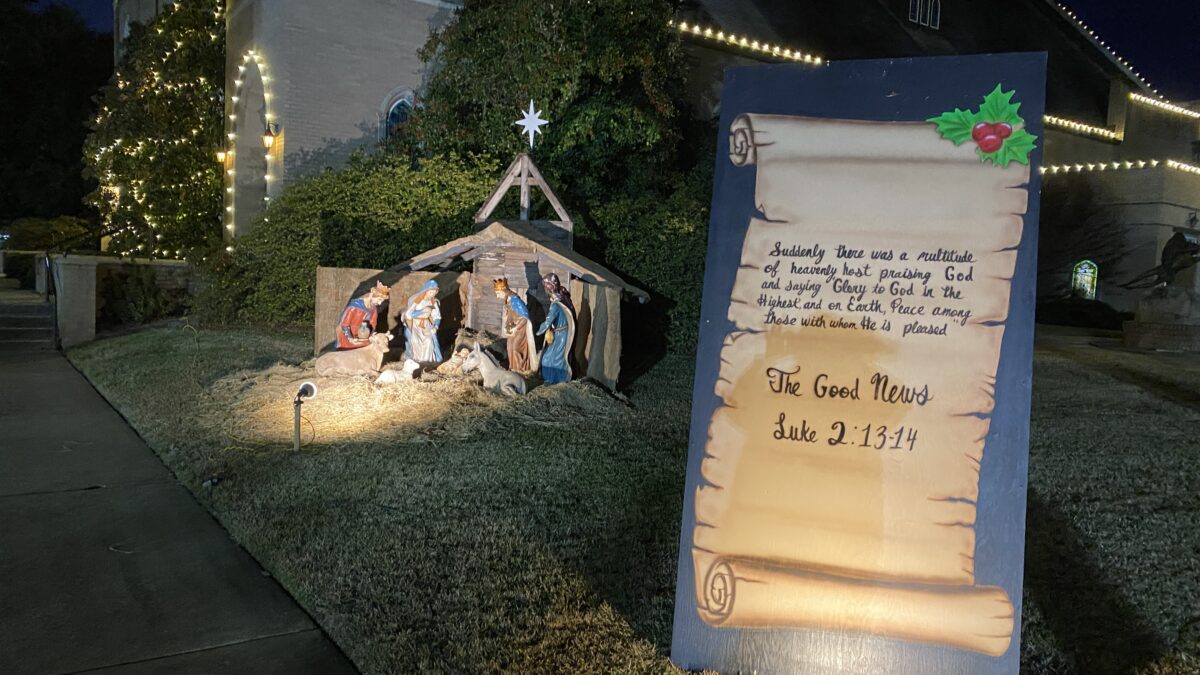 Suddenly there was a multitude
of heavenly host praising God
and saying "Glory to God in the
Highest, and on Earth, Peace among
those with whom He is pleased"
The Good News
Luke 2:13-14